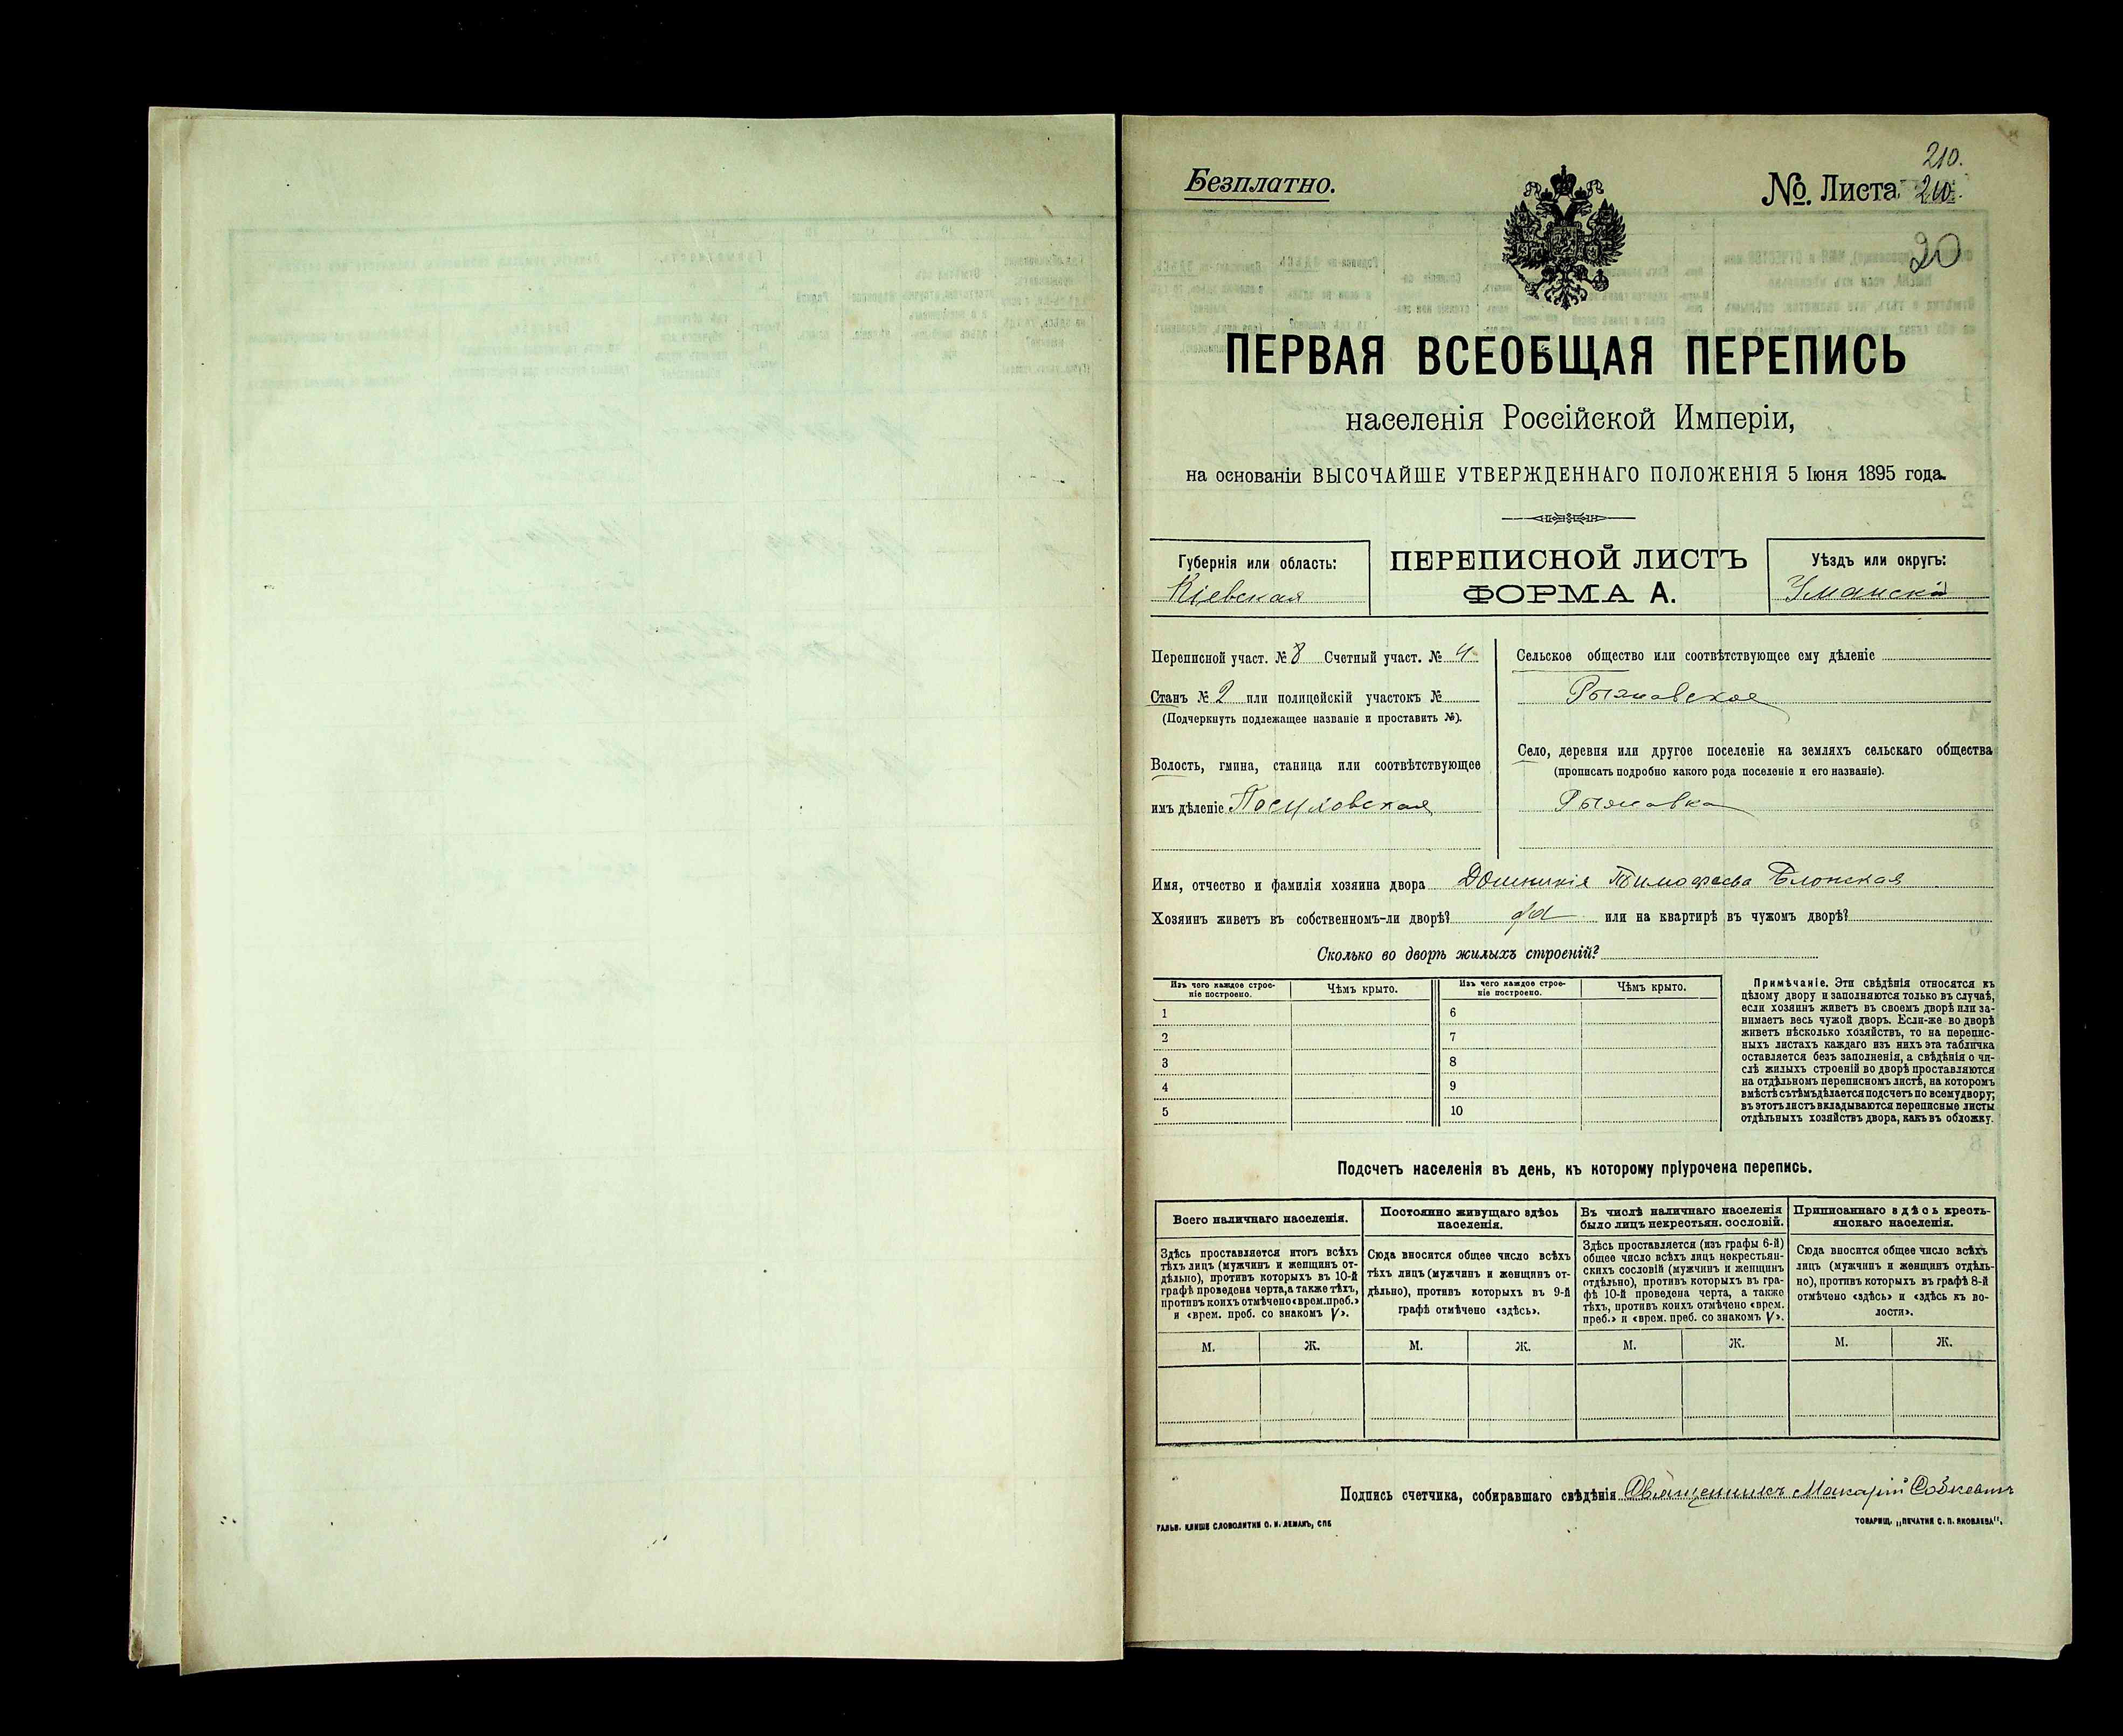 210.
Безплатно.
№. Листа 210.
20
ПЕРВАЯ ВСЕОБЩАЯ ПЕРЕПИСЬ
населенія Россійской Имперіи,
на основаніи ВЫСОЧАЙШЕ УТВЕРЖДЕННАГО ПОЛОЖЕНІЯ 5 Іюня 1895 года.
Губернія или область:
Кіевская
ПЕРЕПИСНОЙ ЛИСТЪ
ФОРМА А.
Уѣздъ или округъ:
Уманскій
Переписной участ. № 8 Счетный участ. № 4
Станъ № 2 или полицейскій участокъ №
(Подчеркнуть подлежащее названіе и проставить №).
Волость, гмина, станица или соотвѣтствующее
имъ дѣленіе Посуховская
Сельское общество или соотвѣтствующее ему дѣленіе
Рыжовское
Село, деревня или другое поселеніе на земляхъ сельскаго общества
(прописать подробно какого рода поселеніе и его названіе).
Имя, отчество и фамилія хозяина двора Домникія Тимофеева
Хозяинъ живетъ въ собственномъ-ли дворѣ? да или на квартирѣ въ чужомъ дворѣ?
Сколько во дворѣ жилыхъ строеній?
Изъ чего каждое строе-
ніе построено.
Чѣмъ крыто.
Изъ чего каждое строе-
ніе построено.
Чѣмъ крыто.
1
6
2
7
3
8
4
9
5
10
Примѣчаніе. Эти свѣдѣнія относятся къ
цѣлому двору и заполняются только въ случаѣ,
если хозяинъ живетъ въ своемъ дворѣ или за-
нимаетъ весь чужой дворъ. Если-же во дворѣ
живетъ нѣсколько хозяйствъ, то на перепис-
ныхъ листахъ каждаго изъ нихъ эта табличка
оставляется безъ заполненія, а свѣдѣнія о чи-
слѣ жилыхъ строеній во дворѣ проставляются
на отдѣльномъ переписномъ листѣ, на которомъ
вмѣстѣ съ тѣмъ дѣлается подсчетъ по всему двору;
въ этотъ листъ вкладываются переписные листы
отдѣльныхъ хозяйствъ двора, какъ въ обложку.
Подсчетъ населенія въ день, къ которому пріурочена перепись.
Всего наличнаго населенія.
Здѣсь проставляется итогъ всѣхъ
тѣхъ лицъ (мужчинъ и женщинъ от-
дѣльно), противъ которыхъ въ 10-й
графѣ проведена черта, а также тѣхъ,
противъ коихъ отмѣчено «врем. преб.»
и «врем. преб. со знакомъ V».
М. Ж.
Постоянно живущаго здѣсь
населенія.
Сюда вносится общее число всѣхъ
тѣхъ лицъ (мужчинъ и женщинъ от-
дѣльно), противъ которыхъ въ 9-й
графѣ отмѣчено «здѣсь».
М. Ж.
Въ числѣ наличнаго населенія
было лицъ некрестьян. сословій.
Здѣсь проставляется (изъ графы 6-й)
общее число всѣхъ лицъ некрестьян-
скихъ сословій (мужчинъ и женщинъ
отдѣльно), противъ которыхъ въ гра-
фѣ 10-й проведена черта, а также
тѣхъ, противъ коихъ отмѣчено «врем.
преб.» и «врем. преб. со знакомъ V».
М. Ж.
Приписаннаго здѣсь кресть-
янскаго населенія.
Сюда вносится общее число всѣхъ
лицъ (мужчинъ и женщинъ отдѣль-
но), противъ которыхъ въ графѣ 8-й
отмѣчено «здѣсь» и «здѣсь къ во-
лости».
М. Ж.
Подпись счетчика, собиравшаго свѣдѣнія Священникъ Макарій Собкевичъ
ГАЛЬВ. КЛИШЕ СЛОВОЛИТНИ О. И. ЛЕМАНЪ, СПБ
ТОВАРИЩ. „ПЕЧАТНЯ С. П. ЯКОВЛЕВА".